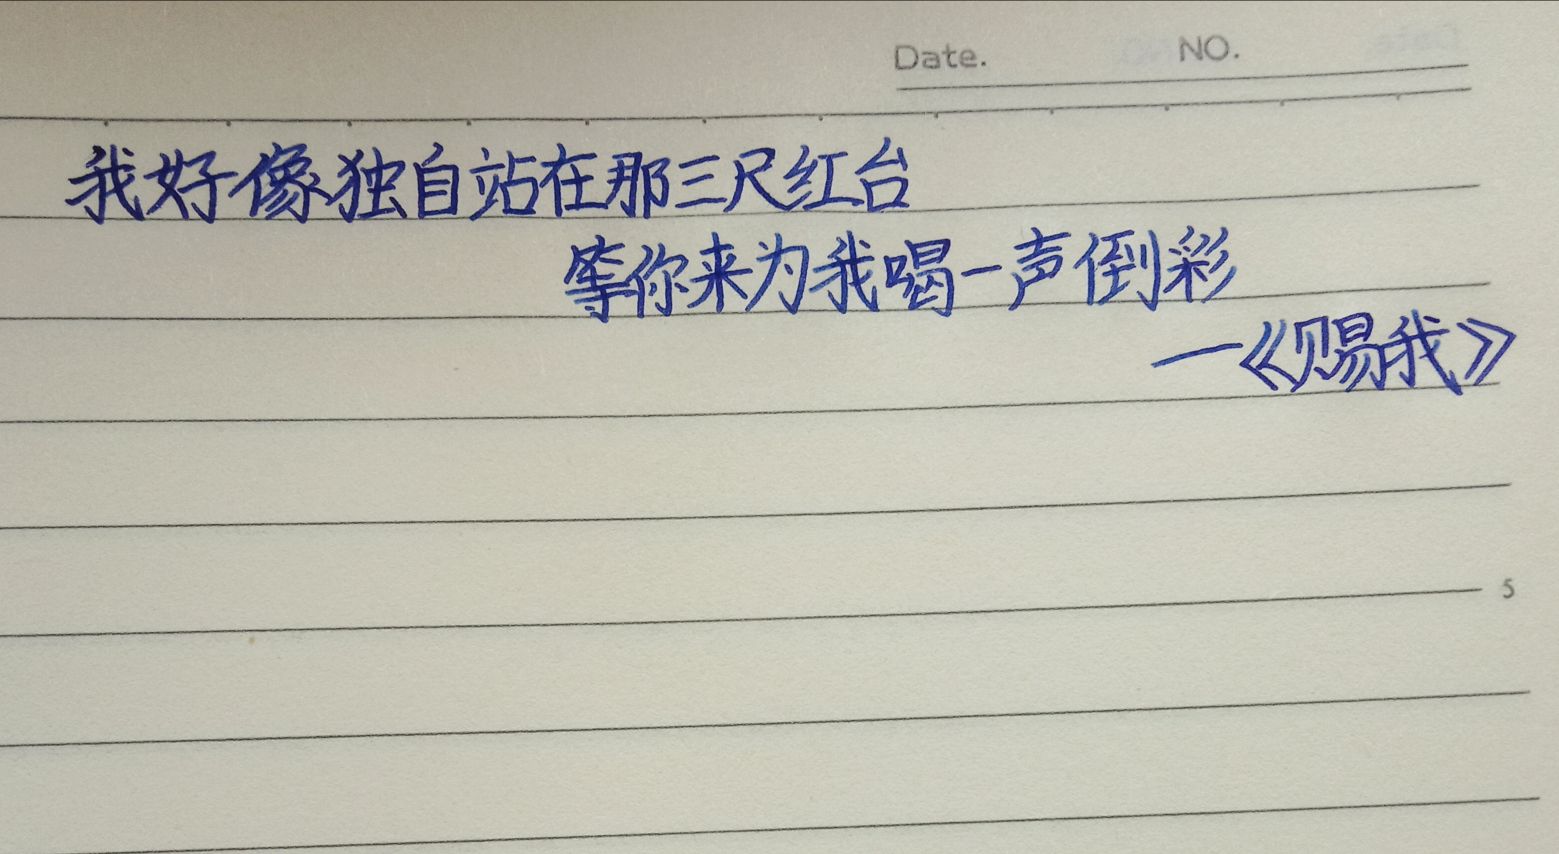 Date. NO.
我好像独自站在那三尺红台
等你来为我喝一声倒彩
—《赐我》
5